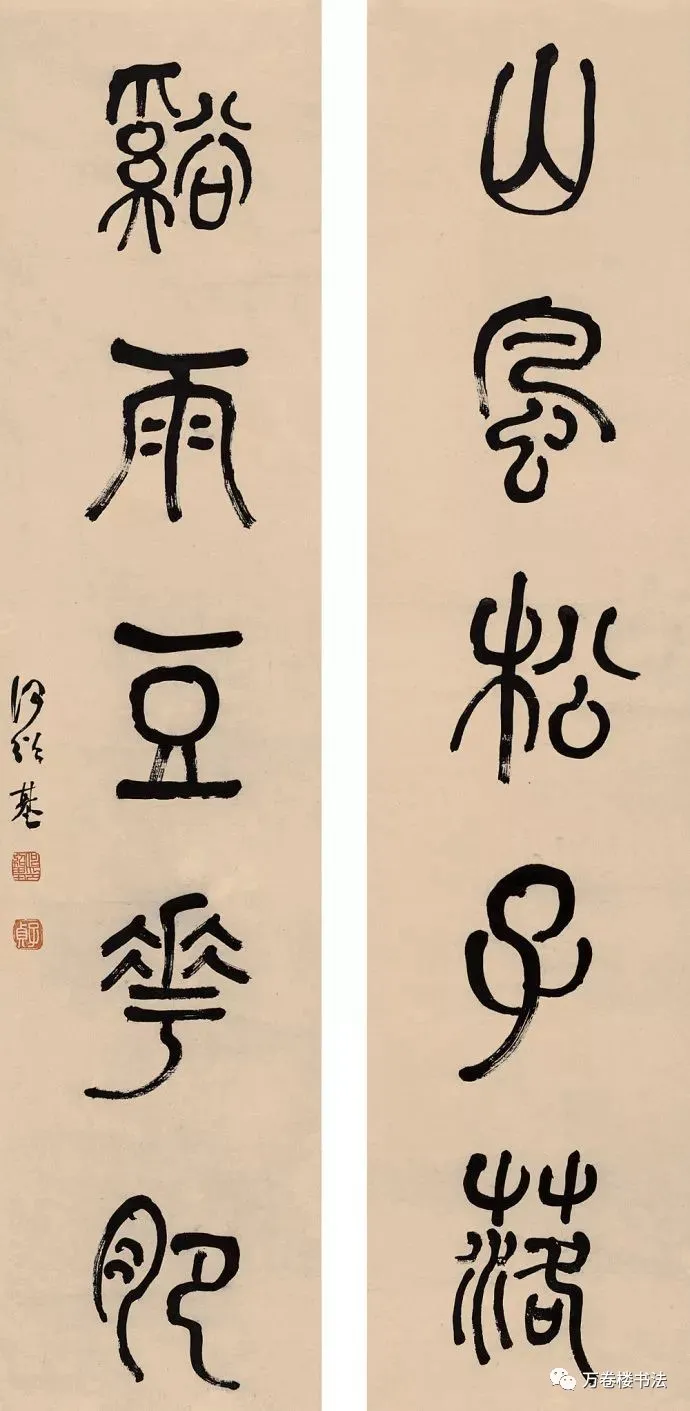 山風松子落
谿雨豆花肥
何紹基
子貞
万卷楼书法